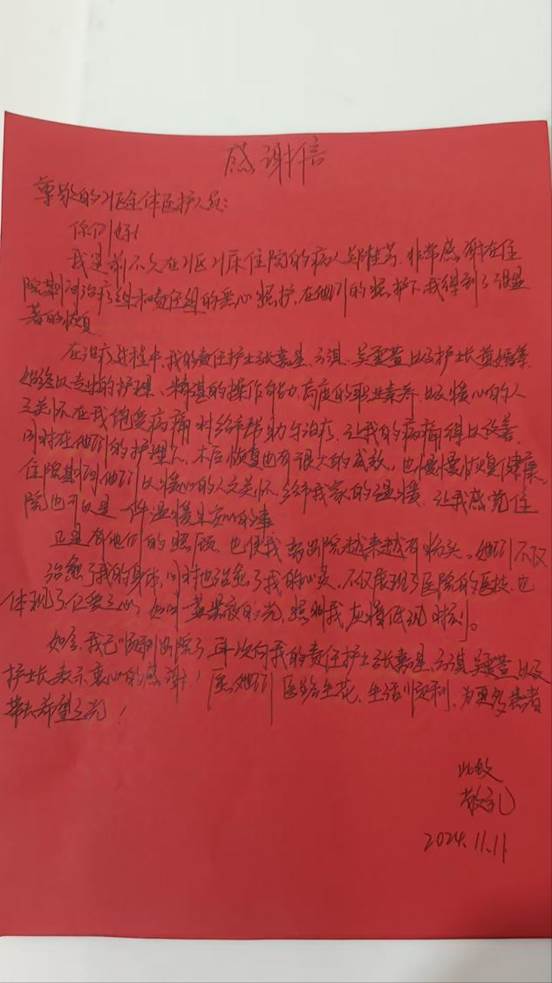 感谢信
尊敬的J区全体医护人员：
你们好！
我是前不久在J区J床住院的病人郑，非常感谢在住
院期间治疗组和责任组的悉心照护，在他们的照护下我得到了很显
著的恢复
在治疗过程中，我的责任护士张嘉星、方淇、吴雯萱以及护士长黄
始终以专业的护理、精湛的操作能力、高度的职业素养以及暖心的人
文关怀在我饱受病痛时给予帮助与治疗，让我的病痛得以改善，
同时在他们的护理下，术后恢复也有很大的成效，也慢慢恢复健康。
住院期间他们以暖心的人文关怀，给予我家的温暖，让我感觉住
院也可以是一件温暖安心的事
正是有他们的照顾，也使我离出院越来越有盼头。她们不仅
治愈了我的身体，同时也治愈了我的心灵，不仅展现了医院的医技，也
体现了仁爱之心，如同黑夜的光，照亮我灰暗低沉时刻。
如今，我已顺利出院了，再次向我的责任护士张嘉星、方淇、吴雯萱以及
护士长表示衷心的感谢！愿她们生花、生活顺利，为更多患者
带去希望之光！
此致
敬礼
2024.11.11